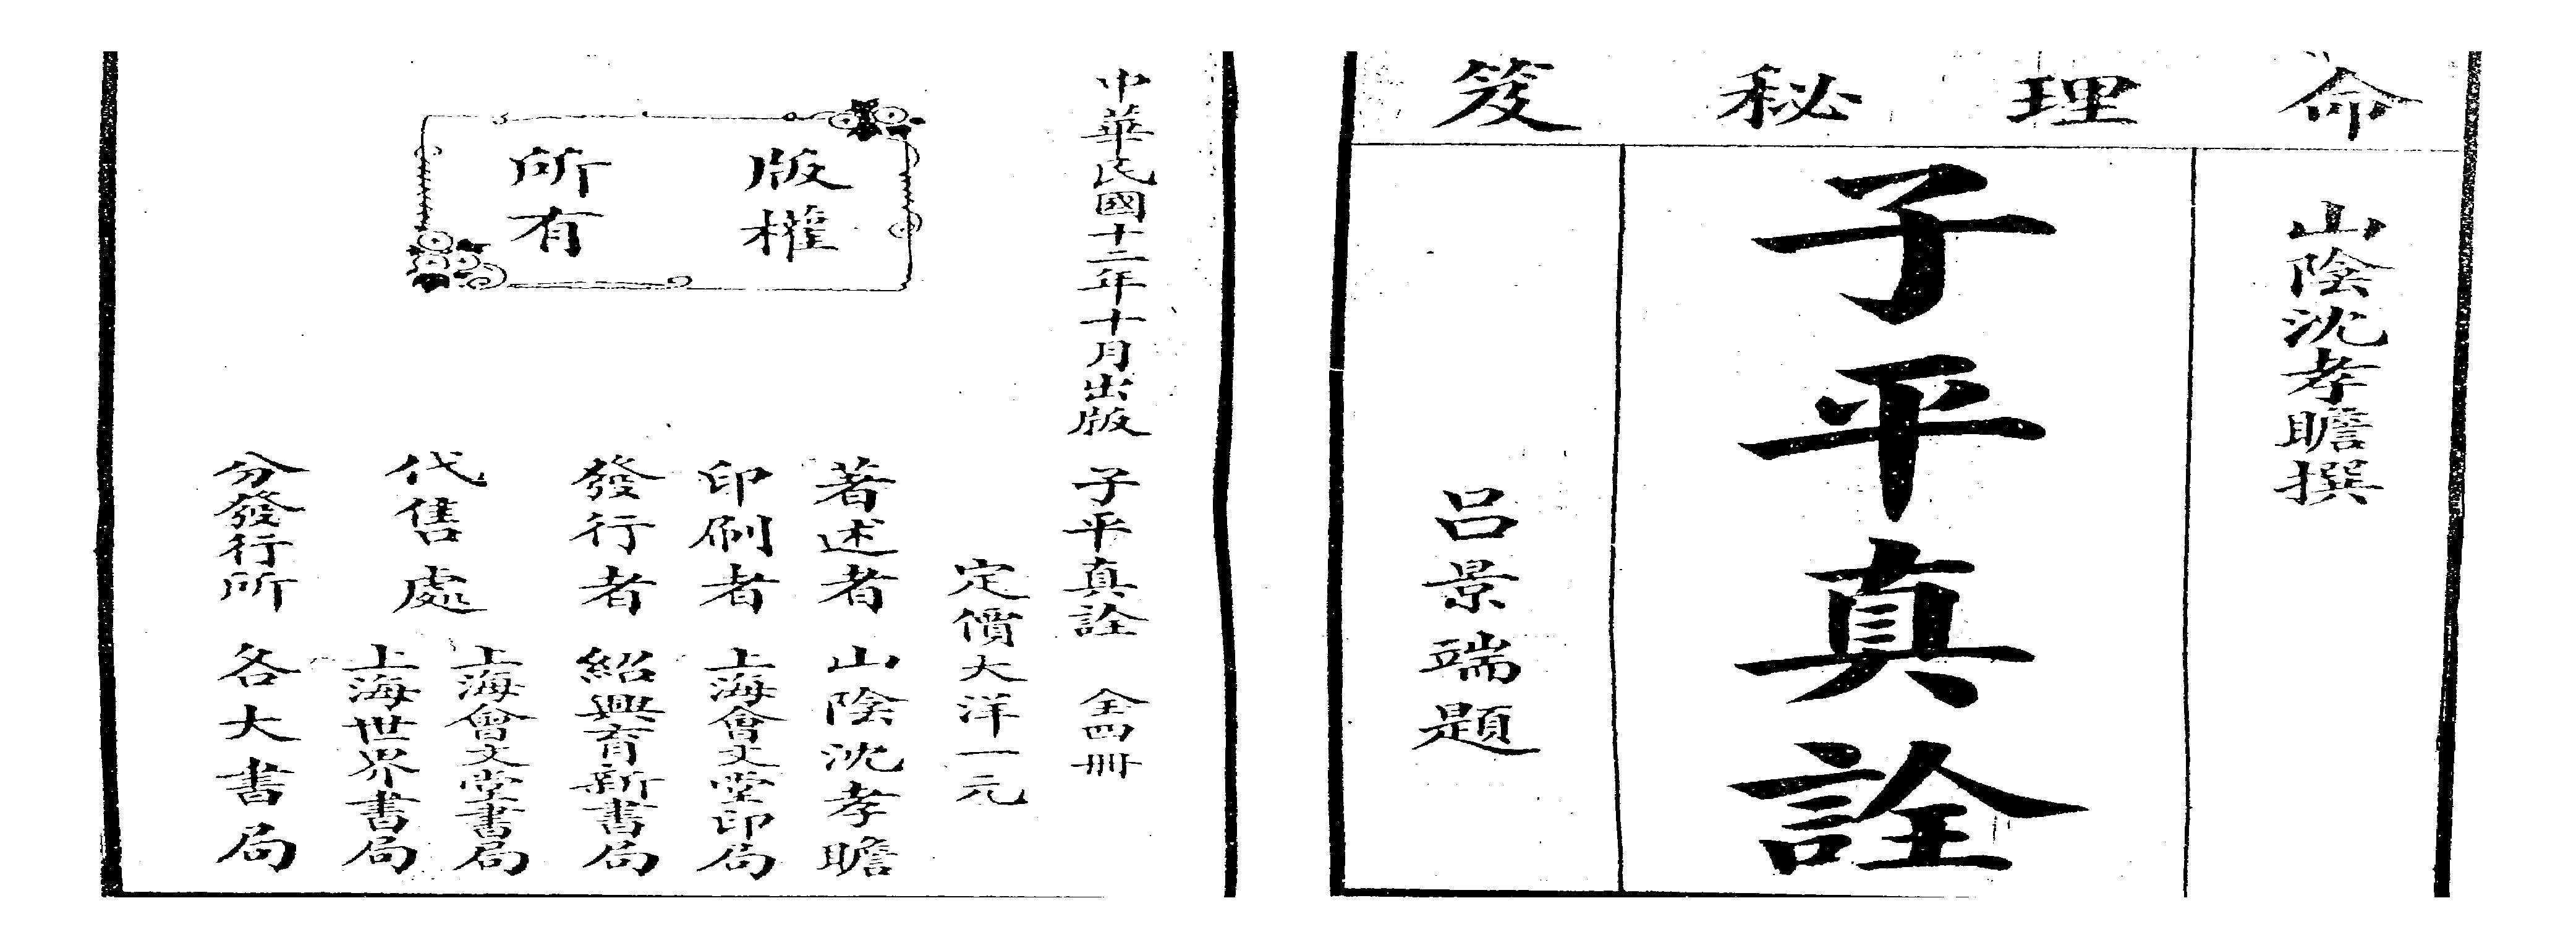 命理秘笈
山陰沈孝瞻撰
子平真詮
呂景端題
中華民國十二年十月出版
子平真詮 全四冊
定價大洋一元
版權
所有
著述者 山陰沈孝瞻
印刷者 上海會文堂印局
發行者 紹興育新書局
代售處
上海會文堂書局
上海世界書局
分發行所 各大書局